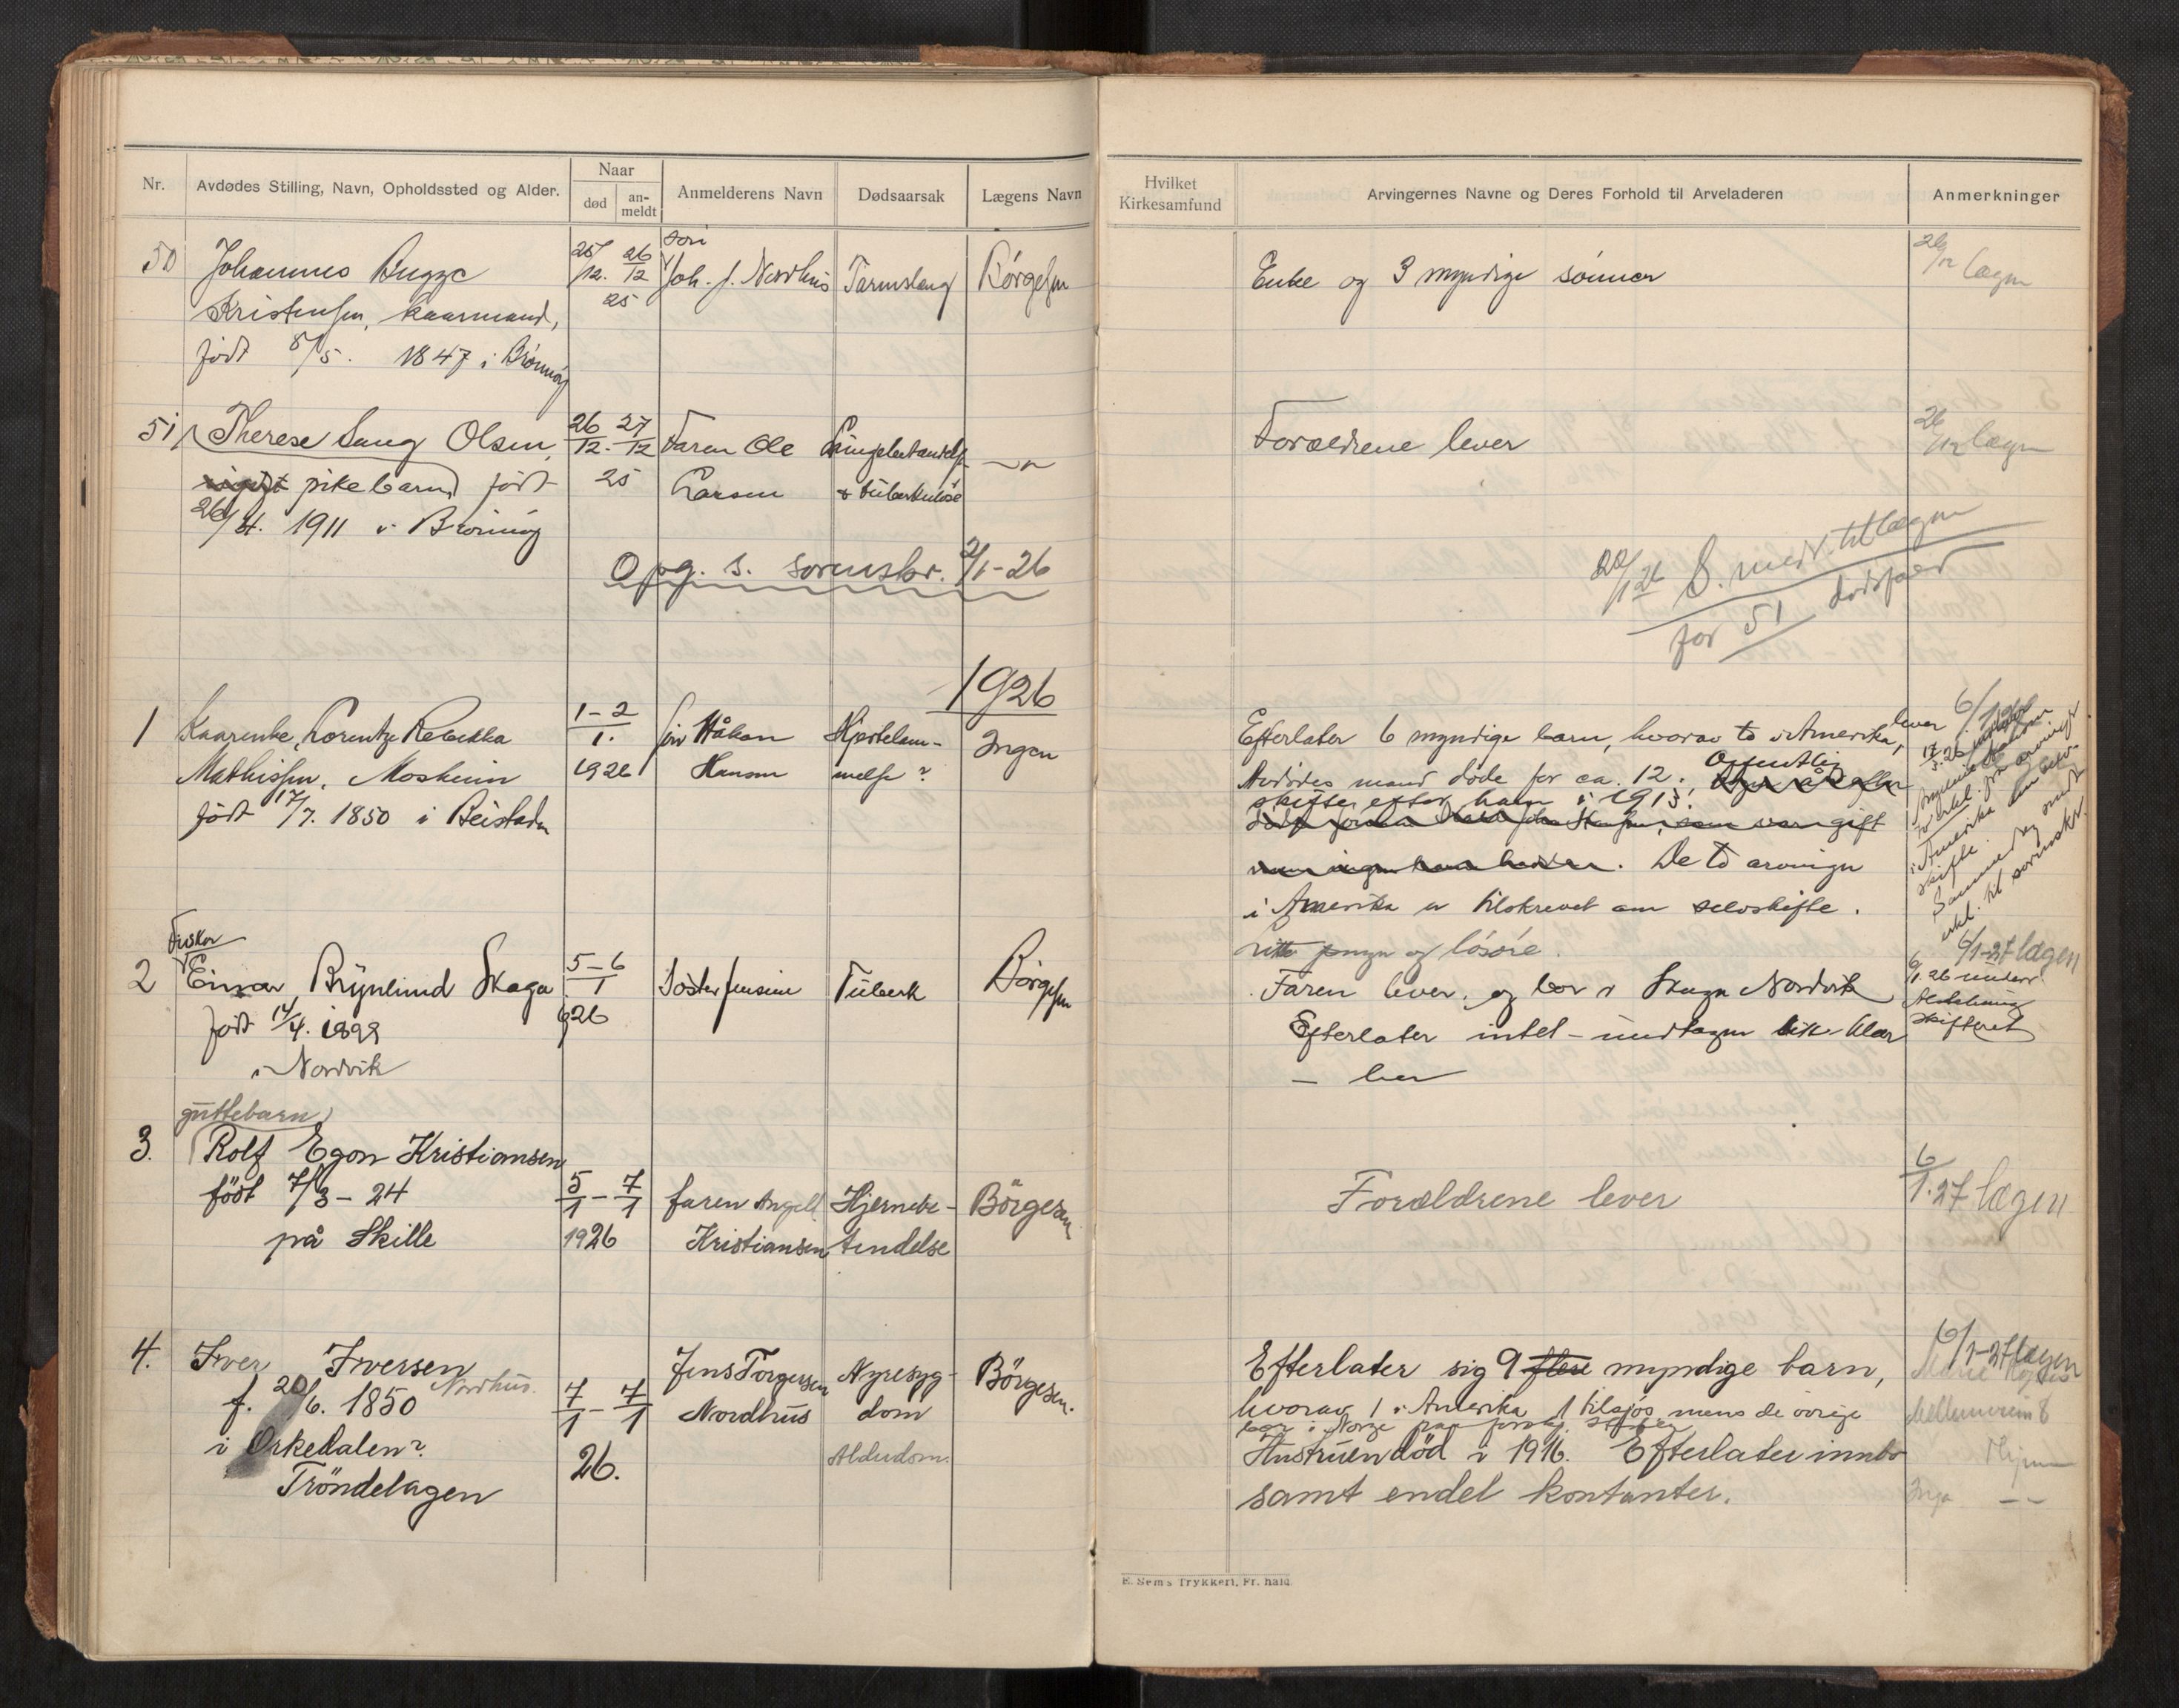 Nr.
Avdødes Stilling, Navn, Opholdssted og Alder.
Naar
død
an-
meldt
Anmelderens Navn
Dødsaarsak
Lægens Navn
50
Johannes Bugge
Kristensen, kaarmand,
født 8/5. 1847 i Brönnöy
25/12. 26/12
25
søn
Joh. J. Nordhus
Tarmslag
Börgesen
51
Therese Saug Olsen,
pikebarn født
26/4. 1911 i Brönnöy
26/12. 27/12
25
Faren Ole
Larsen
Lungebetændelse
& tuberkulose
Opg. s. sorenskr. 2/1-26
1926
1
Kaarenke, Lorentze Rebekka
Mathisen, Mosheim
født 17/7. 1850 i Beistaden
1-2
1.
1926
søn Håkon
Hansen
Hjertelam-
melse?
Ingen
Fisker
2
Einar Brynlund Skaga
født 14/4. 1899
i Nordvik
5-6
1
926
Söster Jensine
Tuberk
Börgesen
guttebarn
3.
Rolf Egon Kristiansen
födt 7/3-24
på Skille
5/1-7/1
1926
faren Angell
Kristiansen
Hjernebe-
tendelse
Börgesen
4.
Iver Iversen
Nordhus.
f. 20/6. 1850
i Orkedalen?
Tröndelagen
7/1-7/1
26.
Jens Torgersen
Nordhus
Nyresyg-
dom
Alderdom.
Börgesen.
Hvilket
Kirkesamfund
Arvingernes Navne og Deres Forhold til Arveladeren
Anmerkninger
Enke og 3 myndige sönner
26/12 lægen
Forældrene lever
26/12 lægen
22/1 26 S. medd. til lægen
for 51 dødsfald
Efterlater 6 myndige barn, hvorav to i Amerika, lever
Avdödes mand döde for ca. 12. Offentlig
skifte efter ham i 1913.
De to arvinger
i Amerika er tilskrevet om selvskifte.
Litt penger og lösöre.
6/1-27 lægen
Faren lever og bor i Skaga Nordvik
Efterlater intet - undtagen litt klær
- lever
6/1.26 underr.
skifteret
Forældrene lever
6/1.27 lægen
Efterlater sig 9 flere myndige barn,
hvorav 1 i Amerika 1 tilsjös mens de övrige
bor i Norge paa forskj. steder
Hustruen död i 1916. Efterlater innbo
samt endel kontanter.
6/1-27 lægen
Marie
Inga --
E. Sem's Trykkeri, Fr. hald.